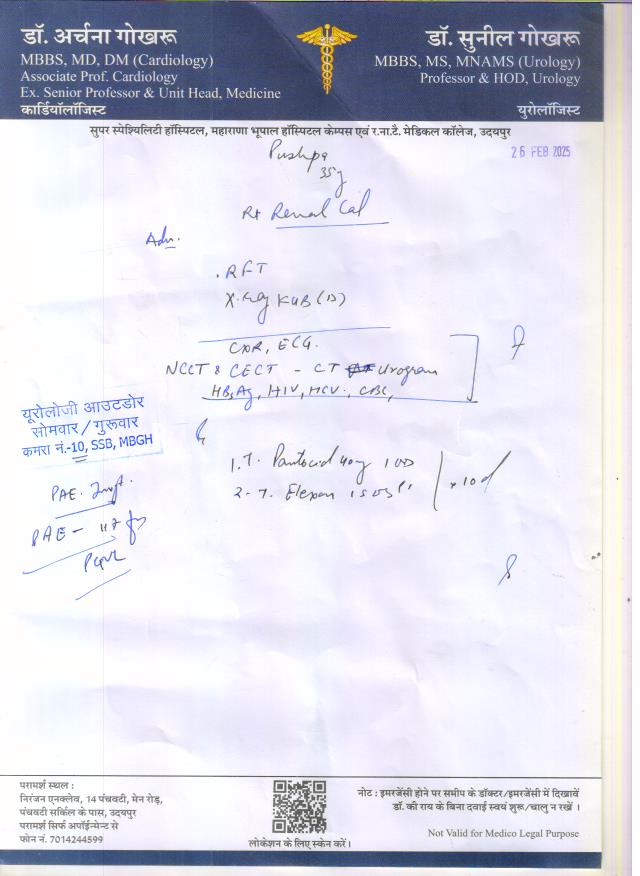 डॉ. अर्चना गोखरू
MBBS, MD, DM (Cardiology)
Associate Prof. Cardiology
Ex. Senior Professor & Unit Head, Medicine
कार्डियॉलॉजिस्ट
डॉ. सुनील गोखरू
MBBS, MS, MNAMS (Urology)
Professor & HOD, Urology
युरोलॉजिस्ट
सुपर स्पेश्यिलिटी हॉस्पिटल, महाराणा भूपाल हॉस्पिटल केम्पस एवं र.ना.टै. मेडिकल कॉलेज, उदयपुर
Pushpa
26 FEB 2025
35y
Rt Renal Cal
Adv.
. RFT
X-ray KUB (D)
CXR, ECG.
NCCT & CECT - CT Urogram
HBsAg, HIV, HCV, CBC,
यूरोलोजी आउटडोर
सोमवार / गुरूवार
कमरा नं.-10, SSB, MBGH
1. T. Pantocid 40mg 1 OD
2. T.
x 10d
PAE
PAE -
परामर्श स्थल :
निरंजन एनक्लेव, 14 पंचवटी, मेन रोड़,
पंचवटी सर्किल के पास, उदयपुर
परामर्श सिर्फ अपॉईन्मेन्ट से
फोन नं. 7014244599
लोकेशन के लिए स्केन करें।
नोट : इमरजेंसी होने पर समीप के डॉक्टर/इमरजेंसी में दिखावें
डॉ. की राय के बिना दवाई स्वयं शुरू/चालु न रखें ।
Not Valid for Medico Legal Purpose